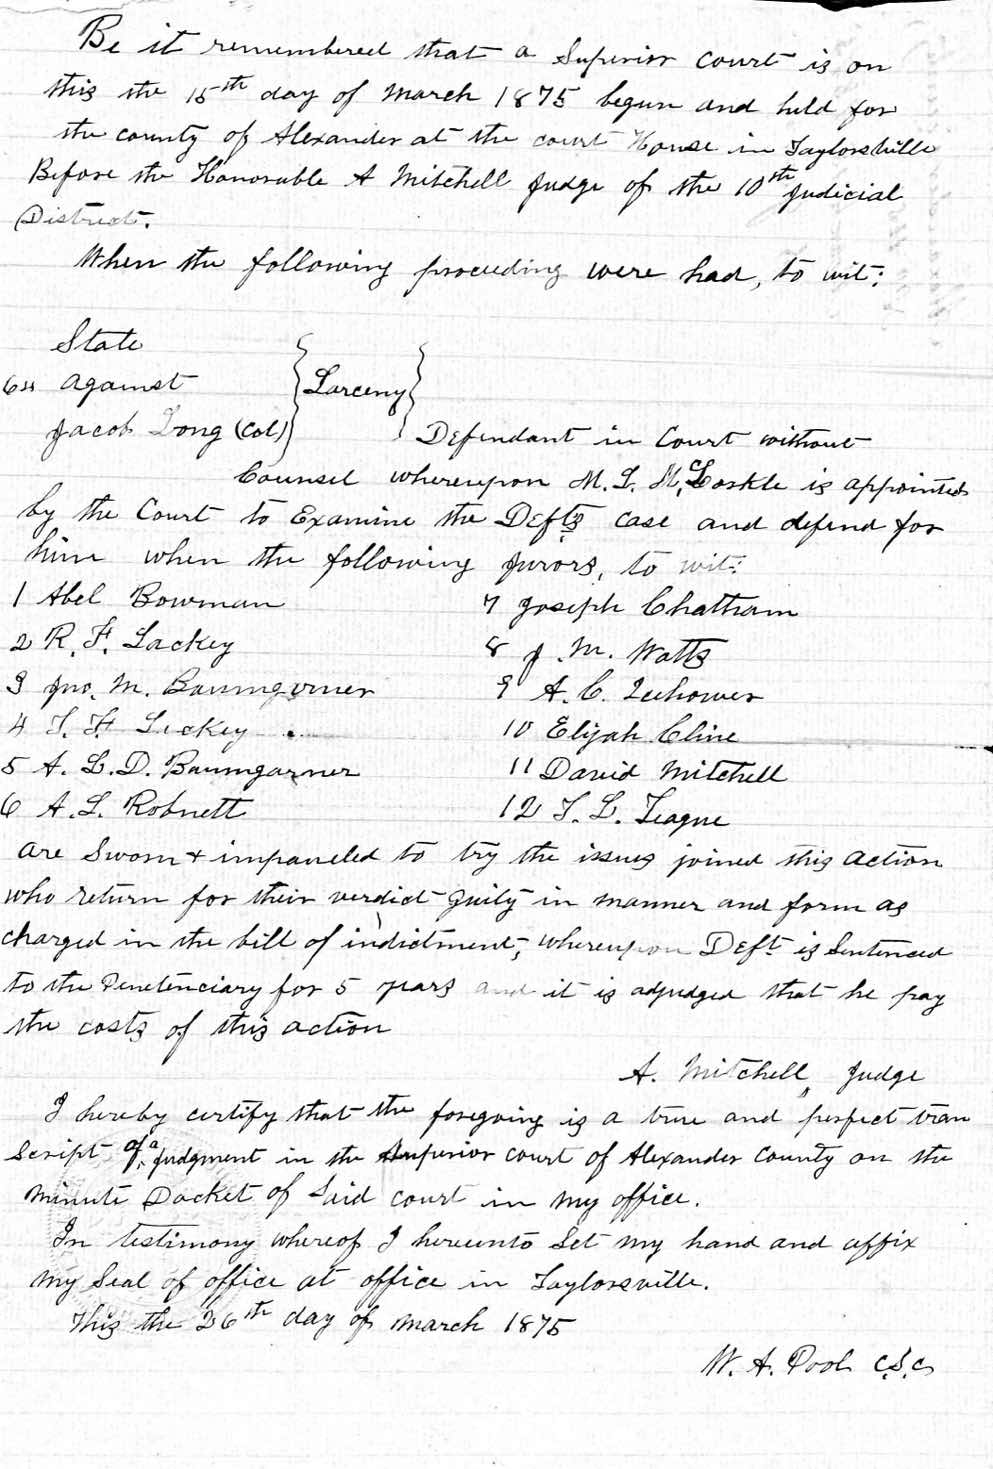 Be it remembered that a Superior Court is on
this the 15th day of March 1875 begun and held for
the county of Alexander at the court House in Taylorsville
Before the Honorable A Mitchell Judge of the 10th Judicial
District.
When the following proceeding were had, to wit;
State
against
Larceny
Jacob Long (Col)
Defendant in Court without
Counsel whereupon M. L. McCorkle is appointed
by the Court to Examine the Defts case and defend for
him when the following jurors, to wit:
1 Abel Bowman
7 Joseph Chatham
2 R. F. Lackey
8 J. M. Watts
3 Jno. M. Baumgarner
9 A. C.
4 T. F. Lackey
10 Elijah Cline
5 A. L. D. Baumgarner
11 David Mitchell
6 A. L. Robnett
12 T. L. Teague
are Sworn + impaneled to try the issues joined this action
who return for their verdict guilty in manner and form as
charged in the bill of indictment; whereupon Deft is Sentenced
to the Penetenciary for 5 years and it is adjudged that he pay
the costs of this action
A. Mitchell, Judge
I hereby certify that the foregoing is a true and perfect tran
script of a judgment in the Superior court of Alexander County on the
Minute Docket of Said court in my office.
In testimony whereof I hereunto Set my hand and affix
my Seal of office at office in Taylorsville.
This the 26th day of March 1875
W. A. Pool C.S.C